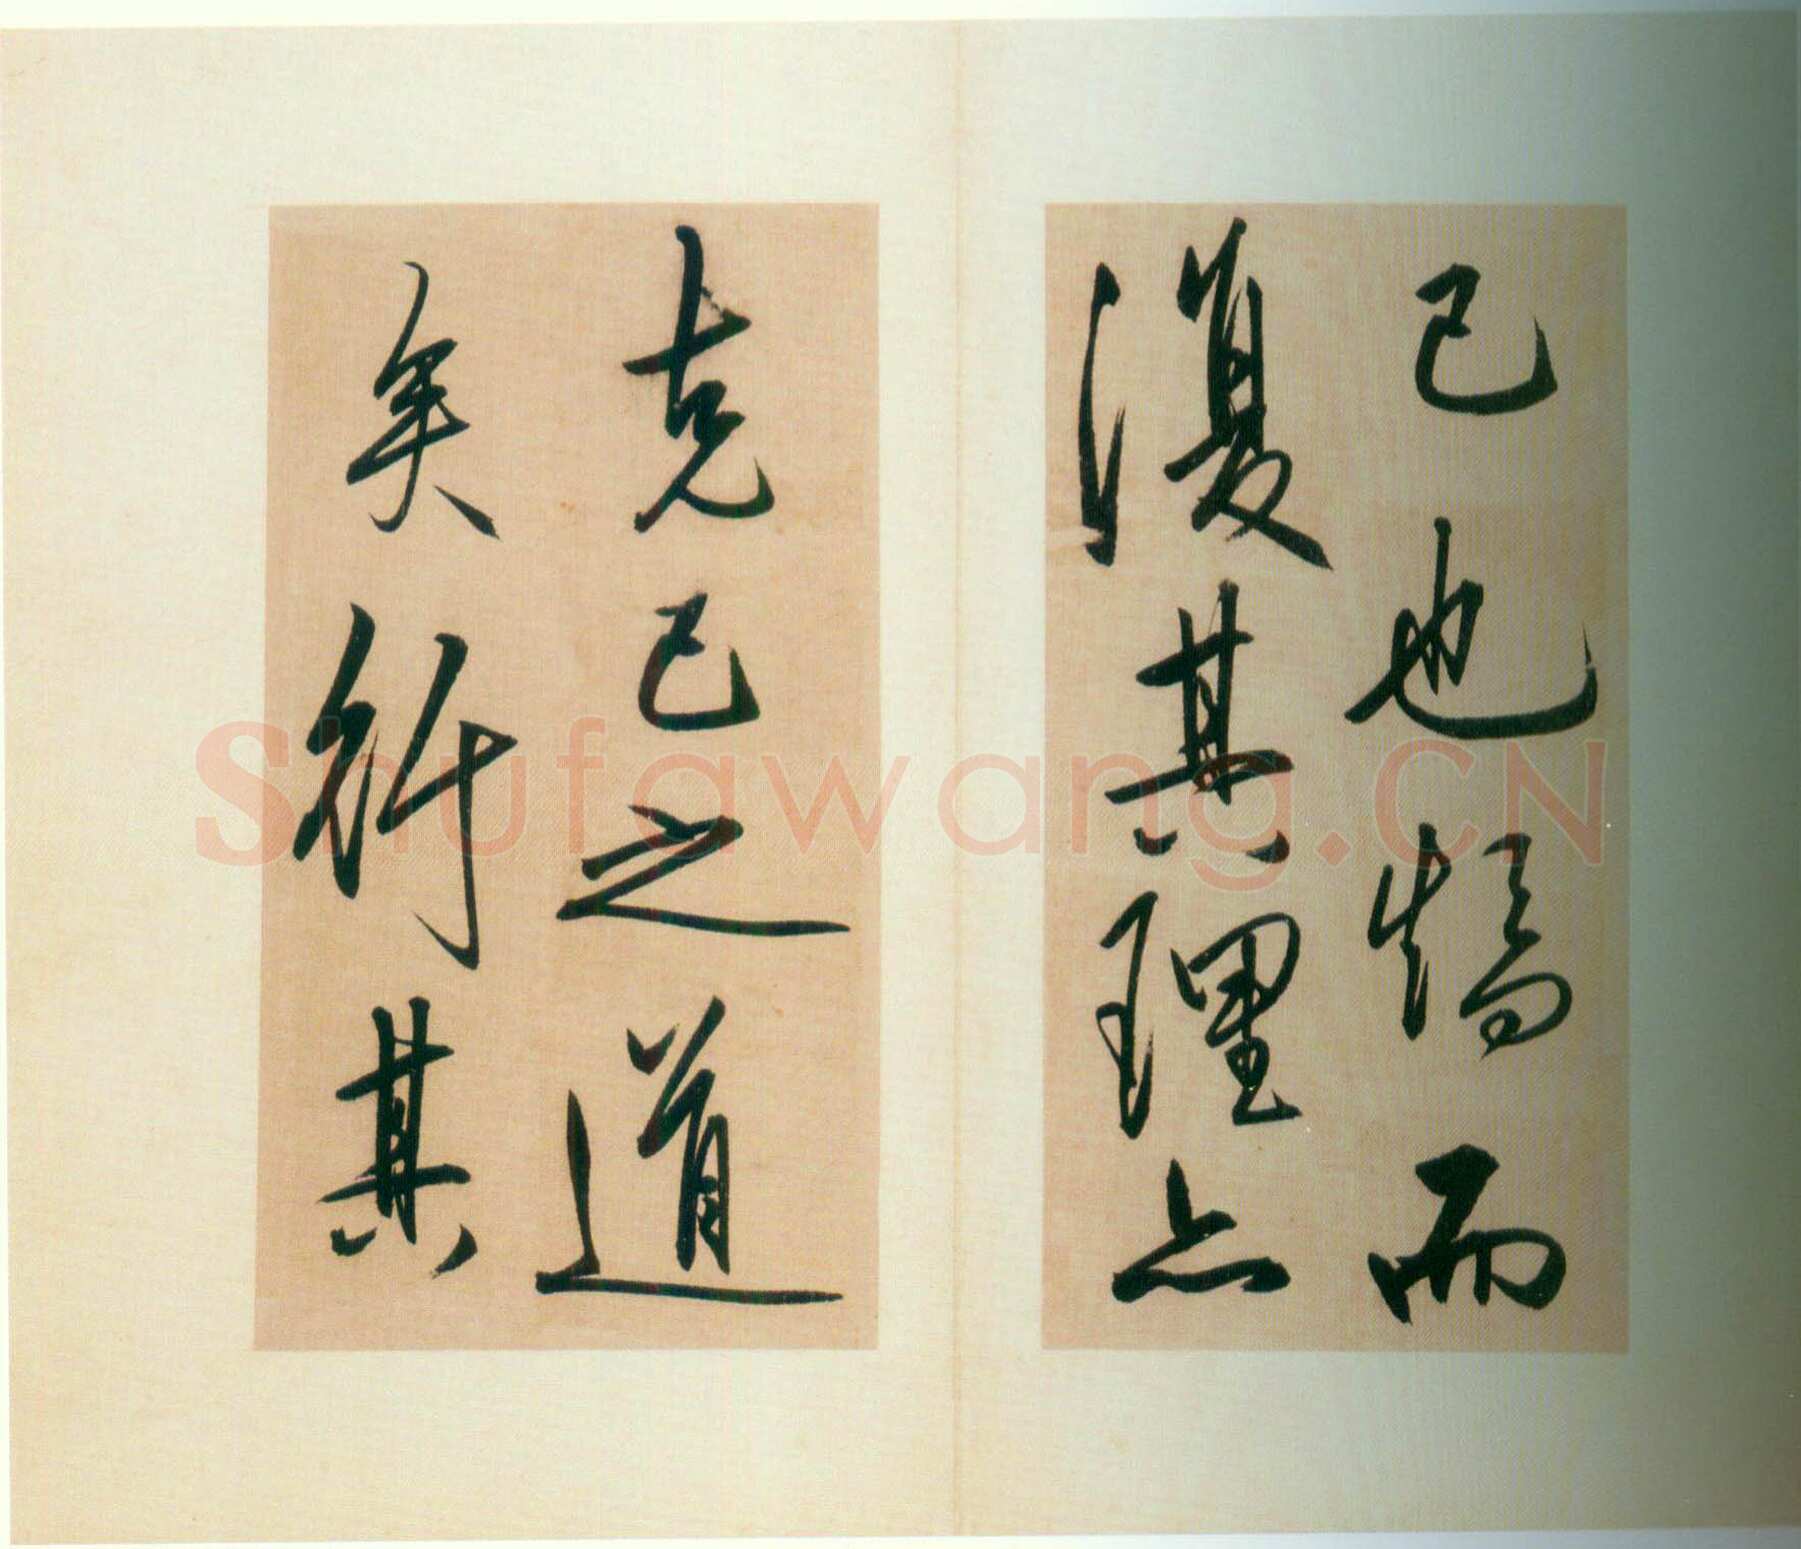 己也矯而
復其理亦
克己之道
矣行其
Shufawang.CN